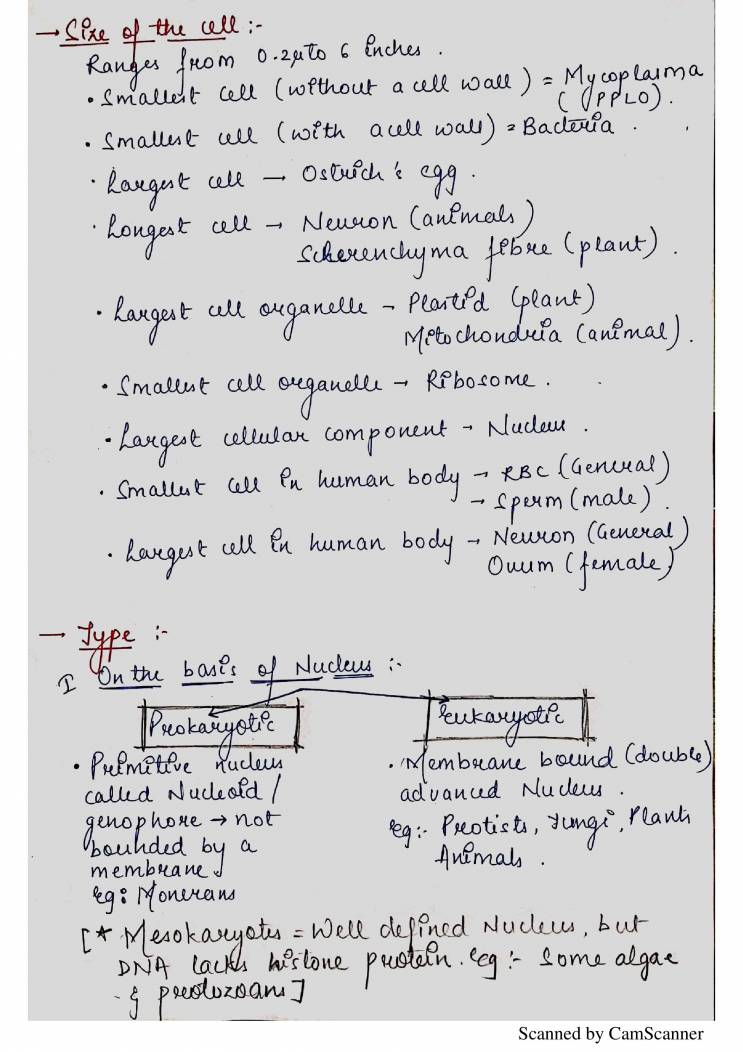 → Size of the cell :-
Ranges from 0.2μ to 6 inches .
• Smallest cell (without a cell wall) = Mycoplasma
(PPLO).
• Smallest cell (with a cell wall) = Bacteria .
• Largest cell → Ostrich's egg .
• Longest cell → Neuron (animals)
Sclerenchyma fibre (plant) .
• Largest cell organelle → Plastid (plant)
Mitochondria (animal) .
• Smallest cell organelle → Ribosome .
• Largest cellular component → Nucleus .
• Smallest cell in human body → RBC (General)
→ Sperm (male) .
• Largest cell in human body → Neuron (General)
Ovum (female)
→ Type :-
I On the basis of Nucleus :-
Prokaryotic
Eukaryotic
• Primitive nucleus
called Nucleoid /
genophore → not
bounded by a
membrane.
eg: Monerans
• Membrane bound (double)
advanced Nucleus .
eg:- Protists, Fungi, Plants
Animals .
[* Mesokaryotes = Well defined Nucleus, but
DNA lacks histone protein. eg :- Some algae
& protozoans]
Scanned by CamScanner